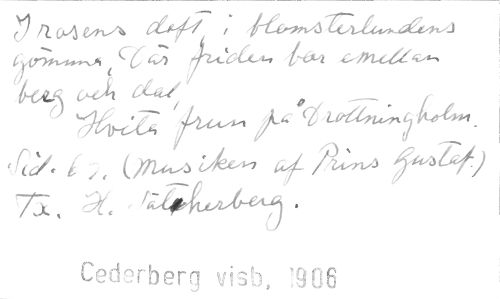 I rosens doft, i blomsterlundens
gömma, Där friden bor emellan
berg och dal,
Hvita frun på Drottningholm.
Sid. 67. (Musiken af Prins Gustaf.)
Tx. H. Sätherberg.
Cederberg visb, 1906